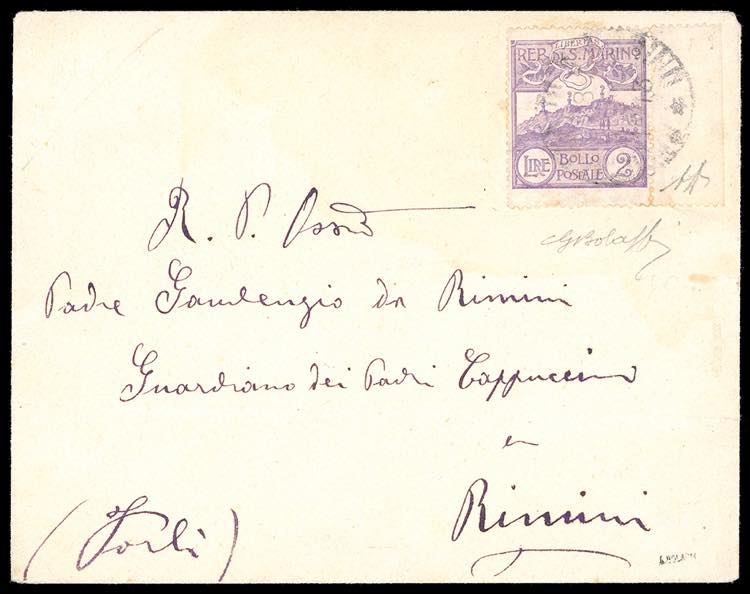 LIBERTAS
REP. DI S. MARINO
LIRE BOLLO POSTALE 2
GBolaffi
R. P. Ossio
Padre Gaudenzio da Rimini
Guardiano dei Padri Cappuccini
in
Rimini
(Forlì)